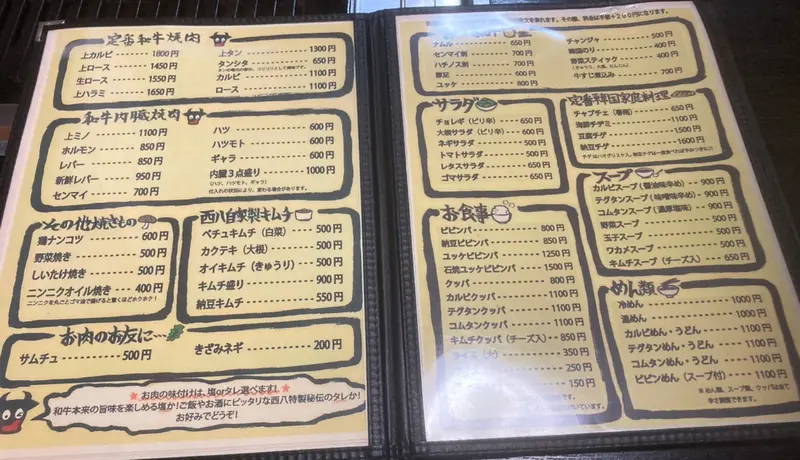 定番和牛焼肉
上カルビ 1800円
上ロース 1450円
生ロース 1550円
上ハラミ 1650円
上タン 1300円
タンシタ 650円
カルビ 1100円
ロース 1100円
和牛内臓焼肉
上ミノ 1100円
ホルモン 850円
レバー 850円
新鮮レバー 950円
センマイ 700円
ハツ 600円
ハツモト 600円
ギャラ 600円
内臓3点盛り 1000円
(ハツ、ハツモト、ギャラ)
仕入れの状況により、変わる場合があります。
その他焼きもの
鶏ナンコツ 600円
野菜焼き 500円
しいたけ焼き 500円
ニンニクオイル焼き 400円
ニンニクを丸ごとゴマ油で揚げると驚くほどホクホク!
西八自家製キムチ
ペチュキムチ(白菜) 500円
カクテキ(大根) 500円
オイキムチ(きゅうり) 500円
キムチ盛り 900円
納豆キムチ 550円
お肉のお友に…
サムチュ 500円
きざみネギ 200円
★お肉の味付けは、塩orタレ選べます!★
和牛本来の旨味を楽しめる塩か!ご飯やお酒にピッタリな西八特製秘伝のタレか!
お好みでどうぞ!
ナムル 650円
センマイ刺 700円
ハチノス刺 700円
豚足 600円
ユッケ 800円
チャンジャ 500円
韓国のり 400円
野菜スティック 400円
牛すじ煮込み 700円
サラダ
チョレギ(ピリ辛) 650円
大根サラダ(ピリ辛) 600円
ネギサラダ 500円
トマトサラダ 500円
レタスサラダ 650円
ゴマサラダ 650円
定番韓国家庭料理
チャプチェ(春雨) 650円
海鮮チヂミ 1100円
豆腐チゲ 1500円
納豆チゲ 1600円
お食事
ビビンバ 800円
納豆ビビンバ 850円
ユッケビビンバ 1250円
石焼ユッケビビンバ 1500円
クッパ 800円
カルビクッパ 1100円
テグタンクッパ 1100円
コムタンクッパ 1100円
キムチクッパ(チーズ入) 850円
350円
250円
150円
スープ
カルビスープ(醤油味辛め) 900円
テグタンスープ(味噌味辛め) 900円
コムタンスープ(濃厚塩味) 900円
野菜スープ 500円
玉子スープ 500円
ワカメスープ 500円
キムチスープ(チーズ入) 650円
めん類
冷めん 1000円
温めん 1000円
カルビめん・うどん 1100円
テグタンめん・うどん 1100円
コムタンめん・うどん 1100円
ビビンめん(スープ付) 1100円
※めん類、スープ類、クッパは全て
辛さ調整できます。